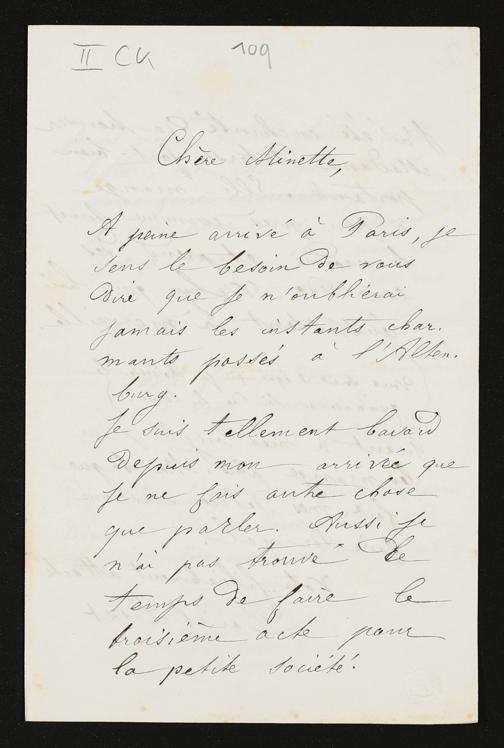 II CK 109
Chère Minette,
A peine arrivé à Paris, je
sens le besoin de vous
dire que je n'oublierai
jamais les instants char-
mants passés à l'Alten-
burg.
Je suis tellement bavard
depuis mon arrivée que
je ne fais autre chose
que parler. Aussi je
n'ai pas trouvé le
temps de faire le
troisième acte pour
la petite société.